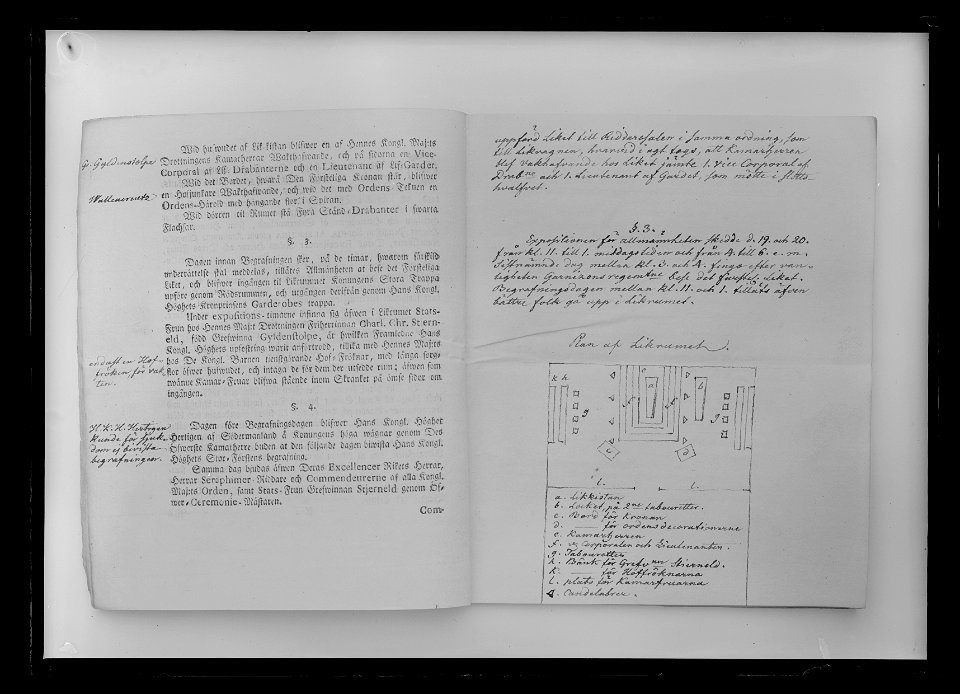 Wid hufwudet af Lik kistan blifwer en af Hennes Kongl. Maj:ts
Drottningens Kamarherrar Wakthafwande, och på sidorna en Vice-
Corporal af Lif-Drabanterne och en Lieutenant af LifGarder.
Wid det Bordet, hwarå Den Förstliga Kronan står, blifwer
en Hofjunkare Wakthafwande, och wid det med Ordens-Teknen en
Ordens-Härold med hängande flor i Spiran.
Wid dörren til Rumet stå Fyra Stånd-Drabanter i swarta
Flachsar.
G. Gyldenstolpe
Wallencreutz
§. 3.
Dagen innan Begrafningen sker, på de timar, hwarom särskild
underrättelse skal meddelas, tillåtes Allmänheten at bese det Förstliga
Liket, och blifwer ingången til Likrummet Konungens Stora Trappa
upföre genom Rådsrummen, och utgången derifrån genom Hans Kongl.
Höghets Kronprinsens Garderobes trappa.
Under expositions-timarne infinna sig äfwen i Likrumet Stats-
Frun hos Hennes Maj:t Drottningen Friherrinnan Charl. Chr. Stiern-
eld, född Grefwinna Gyldenstolpe, åt hwilken Framledne Hans
Kongl. Höghets upfostring warit anförtrodd, tillika med Hennes Maj:ts
hos De Kongl. Barnen tjenstgörande Hof-Fröknar, med långa sorg-
flor öfwer hufwudet, och intaga de för dem der utsedde rum; äfwen som
twänne Kamar-Fruar blifwa stående inom Skranket på ömse sidor om
ingången.
endast en Hof-
fröken, för vak-
ten.
§. 4.
Dagen före Begrafningsdagen blifwer Hans Kongl. Höghet
Hertigen af Södermanland å Konungens höga wägnar genom Des
Öfwerste Kamarherre buden at den följande dagen biwista Hans Kongl.
Höghets Stor-Förstens begrafning.
Samma dag biudas äfwen Deras Excellencer Rikets Herrar,
Herrar Seraphimer-Riddare och Commendeurerne af alla Kongl.
Maj:ts Orden, samt Stats-Frun Grefwinnan Stjerneld genom Öf-
wer-Ceremonie-Mästaren.
H. K. H. Hertigen
kunde för sjuk-
dom ej bivista
begrafningen.
Com-
uppförd Liket till Riddaresalen i samma ordning, som
till Likvagnen, hvarvid i agt togs, att Kamarherren
blef vakthafvande hos Liket jämte 1. Vice Corporal af
Drabne och 1. Lieutenant af Gardet, som mötte i slotts-
hvalfvet.
§. 3.
Expositionen för allmänheten skedde d. 19. och 20.
från kl. 11. till 1. middagstiden och från 4. till 6. e. m.
Sistnämnde dag mellan kl. 3. och 4. fingo efter van-
ligheten Garnizons regemtne bese det furstel. Liket.
Begrafningsdagen mellan kl. 11. och 1. tilläts äfven
bättre folk gå upp i Likrumet.
Plan af Likrumet.
k h
g
f
a
f
b
g
c
d
l.
l.
a. Likkistan
b. Locket, på 2ne tabouretter.
c. Bord för Kronan
d. —— för ordensdecorationerne
e. Kamarherren
f. v. Corporalen och Lieutenanten.
g. Tabouretter
h. Bänk för Grefvnn Stierneld.
k. —— för Hoffröknarna
l. plats för Kamarfruarna
Δ. Candelabrer.